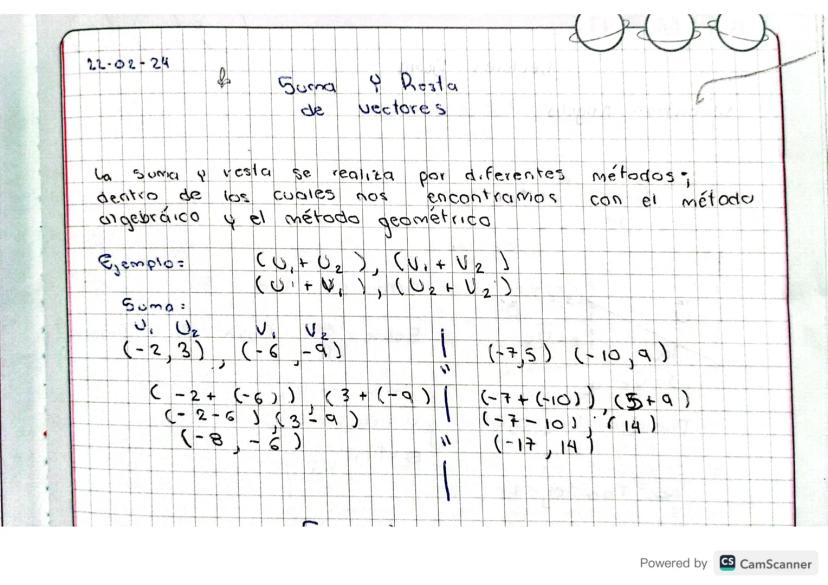 22-02-24
Suma y Resta
de vectores
La suma y resta se realiza por diferentes métodos;
dentro de los cuales nos encontramos con el método
algebráico y el método geométrico
Ejemplo: (U₁ + U₂), (V₁ + V₂)
(U₁ + V₁), (U₂ + V₂)
Suma:
U₁ U₂ V₁ V₂
(-2, 3), (-6, -9)
(-2 + (-6)), (3 + (-9)
(-2-6), (3-9)
(-8, -6)
(-7,5) (-10, 9)
(-7+(-10)), (5+9)
(-7-10), (14)
(-17, 14)
Powered by CS CamScanner